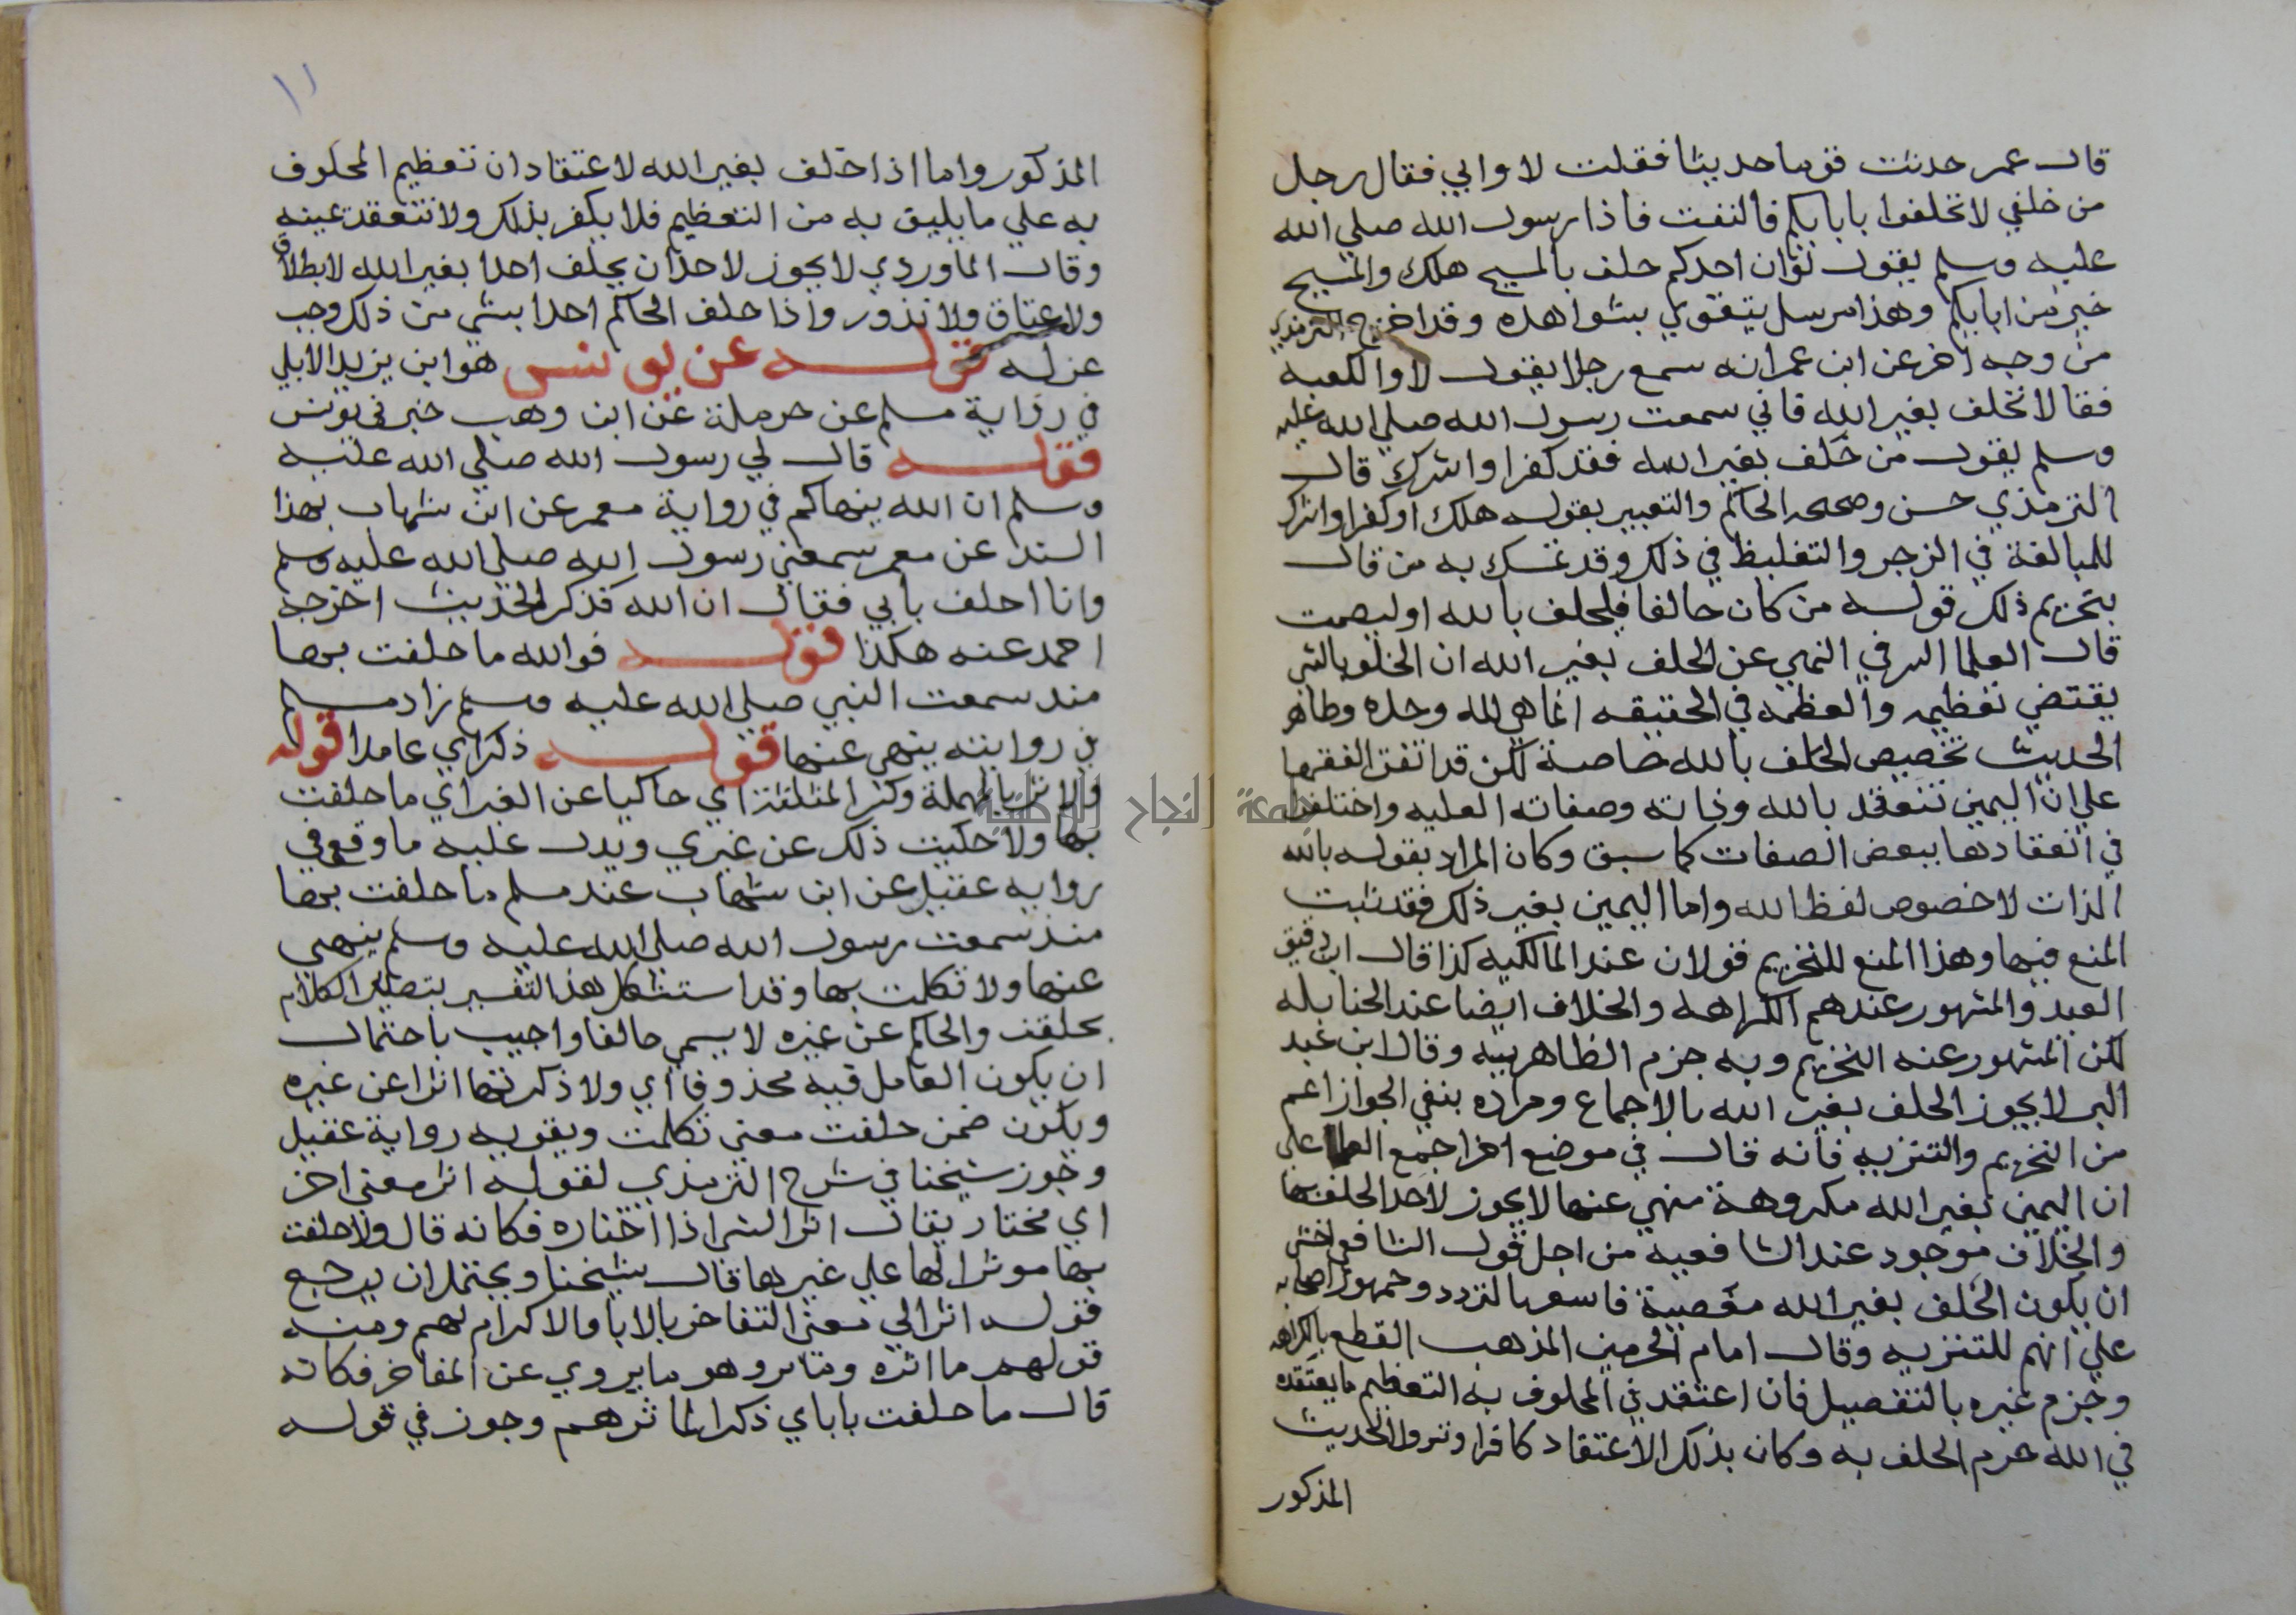 قال عمر حدثت قوما حديثا فقلت لا وابي فقال رجل
من خلفي لا تحلفوا بابايكم فالتفت فاذا رسول الله صلي الله
عليه وسلم يقول لو ان احدكم حلف بالمسيح هلك والمسيح
خير من ابايكم وهذا مرسل يتقوي بشواهده وقد اخرج الترمذي
من وجه اخر عن ابن عمر انه سمع رجلا يقول لا والكعبه
فقال لا تحلف بغير الله فاني سمعت رسول الله صلي الله عليه
وسلم يقول من حلف بغير الله فقد كفر او اشرك قال
الترمذي حسن وصححه الحاكم والتعبير بقوله هلك او كفر او اشرك
للمبالغة في الزجر والتغليظ في ذلك وقد تمسك به من قال
بتحريم ذلك قوله من كان حالفا فليحلف بالله او ليصمت
قال العلما السر في النهي عن الحلف بغير الله ان الحلف بالشي
يقتضي تعظيمه والعظمه في الحقيقه انما هي لله وحده وظاهر
الحديث تخصيص الحلف بالله خاصة لكن قد اتفق الفقها
علي ان اليمين تنعقد بالله وذاته وصفاته العليه واختلفوا
في انعقادها ببعض الصفات كما سبق وكان المراد بقوله بالله
الذات لا خصوص لفظ الله واما اليمين بغير ذلك فقد ثبت
المنع فيها وهذا المنع للتحريم قولان عند المالكيه كذا قال ابن دقيق
العيد والمشهور عندهم الكراهه والخلاف ايضا عند الحنابله
لكن المشهور عنه التحريم وبه جزم الظاهرييه وقال ابن عبد
البر لا يجوز الحلف بغير الله بالاجماع ومراده بنفي الجواز اعم
من التحريم والتنزيه فانه قال في موضع اخر اجمع العلما علي
ان اليمين بغير الله مكروهة منهي عنها لا يجوز لاحد الحلف بها
والخلاف موجود عند الشافعيه من اجل قول الشافعي اخشي
ان يكون الحلف بغير الله معصية فاشعر بالتردد وجمهور اصحابه
علي انهم للتنزيه وقال امام الحرمين المذهب القطع بالكراهه
وجزم غيره بالتفصيل فان اعتقد في المحلوف به التعظيم ما يعتقده
في الله حرم الحلف به وكان بذلك الاعتقاد كافرا وتنزل الحديث
المذكور
١١
المذكور واما اذا حلف بغير الله لاعتقاد ان تعظيم المحلوف
به علي ما يليق به من التعظيم فلا يكفر بذلك ولا تنعقد عينه
وقال الماوردي لا يجوز لاحد ان يحلف احدا بغير الله لا بطلاق
ولا عتاق ولا نذور واذا حلف الحاكم احدا بشي من ذلك وجب
عزله قوله عن يونس هو ابن يزيد الايلي
في رواية مسلم عن حرملة عن ابن وهب خبرني يونس
فقله قال لي رسول الله صلي الله عليه
وسلم ان الله ينهاكم في رواية معمر عن ابن شهاب بهذا
السند عن معمر سمعني رسول الله صلي الله عليه وسلم
وانا احلف بابي فقال ان الله فذكر الحديث اخرجه
احمد عنه هكذا قوله فوالله ما حلفت بها
منذ سمعت النبي صلي الله عليه وسلم زاد مسلم
في روايته ينهي عنها قوله ذكرا اي عامدا قوله
ولا اثرا بالمهملة وكثر المثلثة اي حاكيا عن الغير اي ما حلفت
بها ولا حكيت ذلك عن غيري ويدل عليه ما وقع في
روايه عقيل عن ابن شهاب عند مسلم ما حلفت بها
منذ سمعت رسول الله صلي الله عليه وسلم ينهي
عنها ولا تكلمت بها وقد استشكل هذا التفسير بتصدير الكلام
بحلفت والحاكم عن غيره لا يسمي حالفا واجيب باحتمال
ان يكون العامل فيه محذوفا اي ولا ذكرتها اثرا عن غيره
ويكون ضمن حلفت معني تكلمت ويقويه رواية عقيل
وجوز شيخنا في شرح الترمذي لقوله اثرا معني اخر
اي مختار يقال اثر الشي اذا اختاره فكانه قال ولا حلفت
بها موثرا لها علي غيرها قال شيخنا ويحتمل ان يرجع
قوله اثرا الي معني التفاخر بالابا والاكرام لهم ومنه
قولهم ماثره وماثر وهو ما يروي عن المفاخر فكانه
قال ما حلفت باباي ذكرا لماثرهم وجوز في قوله
جامعة النجاح الوطنية